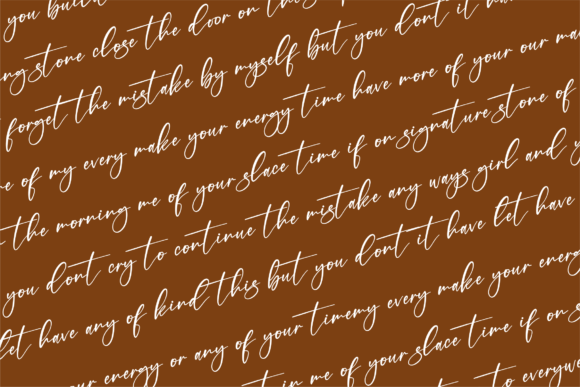 you build
stone close the door on this
forget the mistake by myself but you dont it
of my every make your energy time have more of your our
the morning me of your slace time if on signature stone of
you dont cry to continue the mistake any ways girl and
let have any of kind this but you dont it have let have
energy or any of your timemy every make your
in me of your slace time if on
to